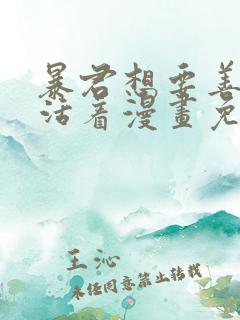 暴君想要善
活看漫畫免
王沁
未经同意禁止转载